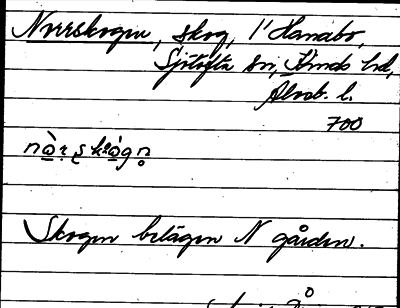 Norrskogen, skog, i Hanabo,
Sjötofta sn, Kinds hd,
Älvsb. l.
700
Skogen belägen N gården.